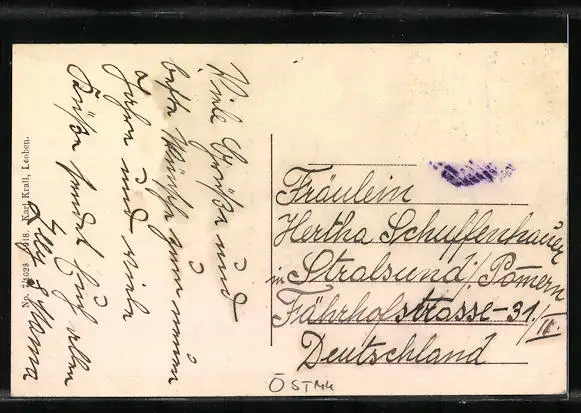 Viele Grüße und
beste Wünsche zum neuen
Jahre und viele
Küße sendet Euch allen
Elly & Mama
No. 1918. Karl Krall, Leoben.
Fräulein
Hertha Schuffenhauer
in Stralsund/Pomern
Fährhofstrasse-31/II.
Deutschland
ÖSTMK